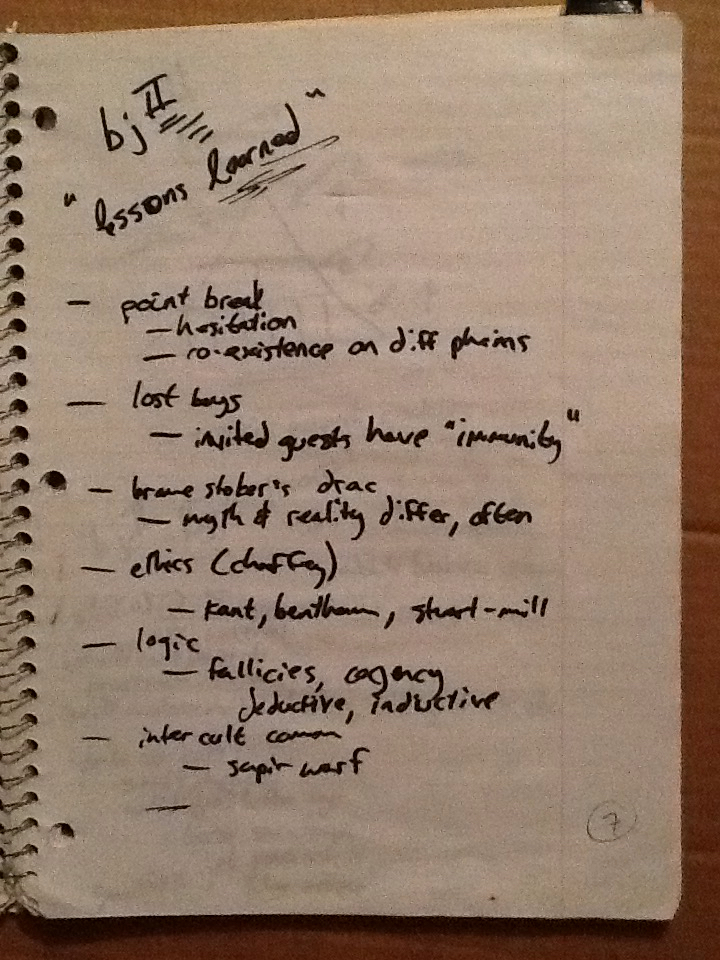 bj II
"lessons learned"
— point break
— hesitation
— co-existence on diff plains
— lost boys
— invited guests have "immunity"
— brame stoker's drac
— myth & reality differ, often
— ethics (chaffey)
— kant, bentham, stuart-mill
— logic
— fallicies, cogency
deductive, inductive
— inter cult comm
— sapir warf
—
7